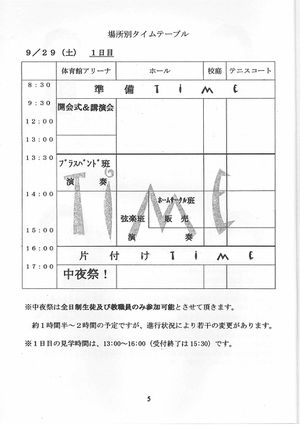 場所別タイムテーブル
9／29（土）　1日目
体育館アリーナ　ホール　校庭　テニスコート
8:30
準備TIME
9:30
開会式＆講演会
12:00
13:00
13:30
ブラスバンド班
演奏
14:00
TIME
ホームサークル班
弦楽班　販売
演奏
15:00
16:00
片付けTIME
17:00
中夜祭！
※中夜祭は全日制生徒及び教職員のみ参加可能とさせて頂きます。
約1時間半～2時間の予定ですが、進行状況により若干の変更があります。
※1日目の見学時間は、13:00～16:00（受付終了は15:30）です。
5